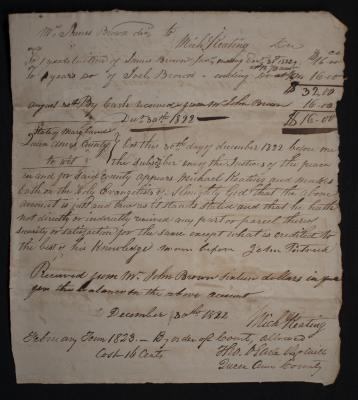 Mrs James Brown dr to Mich Keating
To 1 years tuition of James Brown ending
To 1 years do of Josh Brown ending 16.00
$ 32.00
august By Cash received from Mr John Brown 16.00
Decr 30th 1822 $ 16.00
State of Maryland
Queen Anns County to wit
On this 30th day of december 1822 before me
the Subscriber one of the Justices of the peace
in and for said County appears Michael Keating and makes
Oath on the Holy Evangelists of Almighty God that the above
account is just and true as it stands stated and that he hath
not directly or indirectly received any part or parcel thereof
security or satisfaction for the same except what is credited to
the best of his Knowledge sworn before John
Received from Mr John Brown Sixteen dollars in
for the balance on the above account
December 30th 1822
Mich Keating
February Term 1823. By order of Court, allowed
Cost 16 Cents
Queen Ann County